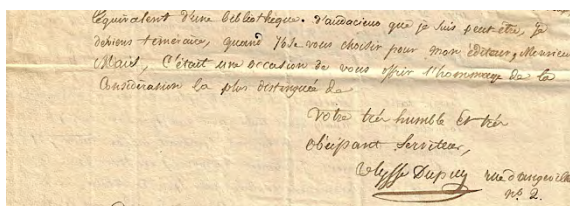 Equivalent d'une bibliothèque. d'audacieux que je suis peut-etre, je
deviens temeraire, quand j'ose vous choisir pour mon éditeur, Monsieur
Mais, C'était une occasion de vous offrir l'hommage de la
Considération la plus distinguée de
Votre très humble Et très
obéissant Serviteur,
Ulysse Dupuy rue d'angevill
n.º 2.